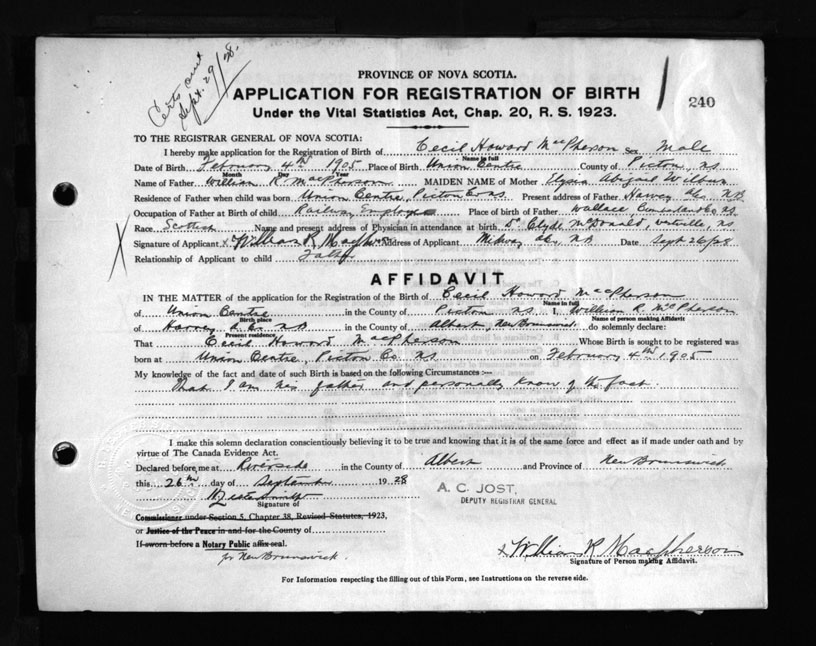 Certs sent
Sept. 29/28.
PROVINCE OF NOVA SCOTIA.
APPLICATION FOR REGISTRATION OF BIRTH
240
Under the Vital Statistics Act, Chap. 20, R. S. 1923.
TO THE REGISTRAR GENERAL OF NOVA SCOTIA:
I hereby make application for the Registration of Birth of Cecil Howard MacPherson Male
Name in full
Date of Birth February 4th 1905 Place of Birth Union Centre County of Pictou, N.S.
Month Day Year
Name of Father William R. MacPherson MAIDEN NAME of Mother Abigail
Residence of Father when child was born Union Centre, Pictou Co NS Present address of Father Harvey N.B.
Occupation of Father at Birth of child Railway Employee Place of birth of Father Wallace, Cumberland Co NS
Race Scottish Name and present address of Physician in attendance at birth Dr Clyde McDonald, NS
Signature of Applicant x William R MacPherson Address of Applicant N.B. Date Sept 26/28
Relationship of Applicant to child Father
AFFIDAVIT
IN THE MATTER of the application for the Registration of the Birth of Cecil Howard MacPherson
Name in full
of Union Centre in the County of Pictou NS I, William R McPherson
Birth place Name of person making Affidavit
of Harvey N.B in the County of Albert, New Brunswick do solemnly declare:
Present residence
That Cecil Howard MacPherson Whose Birth is sought to be registered was
born at Union Centre, Pictou Co. NS on February 4th 1905
My knowledge of the fact and date of such Birth is based on the following Circumstances:—
That I am his father and personally know of the fact.
I make this solemn declaration conscientiously believing it to be true and knowing that it is of the same force and effect as if made under oath and by
virtue of The Canada Evidence Act.
Declared before me at Riverside in the County of Albert and Province of New Brunswick
this 26th day of September 1928
A. C. JOST,
DEPUTY REGISTRAR GENERAL
Signature of
Commissioner under Section 5, Chapter 38, Revised Statutes, 1923,
or Justice of the Peace in and for the County of
If sworn before a Notary Public affix seal.
for New Brunswick.
x William R MacPherson
Signature of Person making Affidavit.
For Information respecting the filling out of this Form, see Instructions on the reverse side.